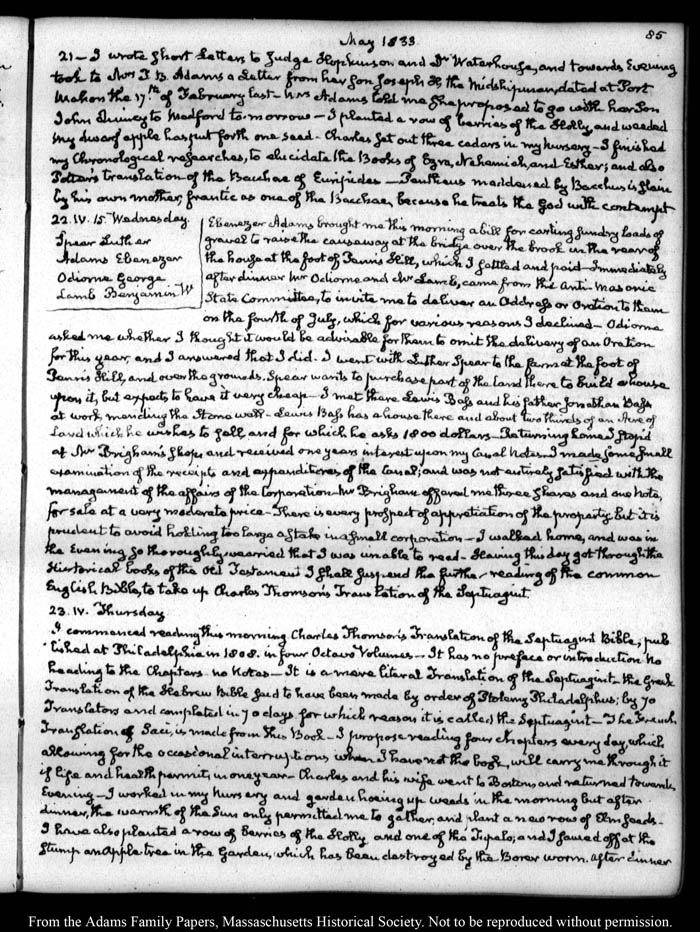 May 1833
85
21 – I wrote short Letters to Judge Hopkinson and Dr. Waterhouse, and towards Evening
took to Mrs T. B. Adams a Letter from her Son Joseph H, the Midshipman, dated at Port
Mahon the 17th of February last – Mrs Adams told me she proposed to go with her Son
John Quincy to Medford to-morrow – I planted a row of berries of the Holly, and weeded
My dwarf apple has put forth one seed – Charles set out three cedars in my nursery – I finished
my Chronological researches, to elucidate the Books of Ezra, Nehemiah, and Esther; and also
Potter's translation of the Bacchae of Euripides – Pentheus maddened by Bacchus is slain
by his own mother, frantic as one of the Bacchae, because he treats the God with contempt
22. IV. 15. Wednesday.
Spear Luther
Adams Ebenezer
Odiorne George
Lamb Benjamin W
Ebenezer Adams brought me this morning a bill for carting sundry loads of
gravel to raise the causeway at the bridge over the brook in the rear of
the house at the foot of Penn's Hill, which I settled and paid – Immediately
after dinner Mr Odiorne and Mr Lamb, came from the Anti-Masonic
State Committee, to invite me to deliver an Address or Oration to them
on the fourth of July, which for various reasons I declined – Odiorne
asked me whether I thought it would be advisable for them to omit the delivery of an Oration
for this year, and I answered that I did. I went with Luther Spear to the farm at the foot of
Penn's Hill, and over the grounds. Spear wants to purchase part of the land there to build a house
upon it, but expects to have it very cheap – I met there Lewis Bass and his father Jonathan Bass
at work mending the Stone wall – Lewis Bass has a house there and about two thirds of an Acre of
Land which he wishes to sell, and for which he asks 1800 dollars – Returning home I stop'd
at Mr Brigham's Shop and received one years interest upon my Canal Notes. I made some small
examination of the receipts and expenditures of the Canal; and was not entirely satisfied with the
management of the affairs of the Corporation – Mr Brigham offered me three shares and one Note,
for sale at a very moderate price – There is every prospect of appretiation of the property. But it is
prudent to avoid holding too large a stake in a small corporation – I walked home, and was in
the Evening so thoroughly wearried that I was unable to read – Having this day got through the
Historical books of the Old Testament I shall suspend the further reading of the common
English Bible, to take up Charles Thomson's Translation of the Septuagint.
23. IV. Thursday
I commenced reading this morning Charles Thomson's Translation of the Septuagint Bible, pub
lished at Philadelphia in 1808. in four Octavo Volumes – It has no preface or introduction no
heading to the Chapters – no Notes – It is a mere literal Translation of the Septuagint – the Greek
Translation of the Hebrew Bible said to have been made by order of Ptolemy Philadelphus; by 70
Translators and completed in 70 days for which reason it is called the Septuagint – The French
Translation of Saci, is made from this Book – I propose reading four chapters every day, which
allowing for the occasional interruptions when I have not the book, will carry me through it
if life and health permit, in one year – Charles and his wife went to Boston, and returned towards
Evening – I worked in my nursery and garden hoeing up weeds in the morning but after
dinner, the warmth of the Sun only permitted me to gather, and plant a new row of Elm seeds –
I have also planted a row of berries of the Holly and one of the Tupelo; and I sawed off at the
stump an Apple tree in the Garden, which has been destroyed by the Borer worm. After dinner
From the Adams Family Papers, Massachusetts Historical Society. Not to be reproduced without permission.